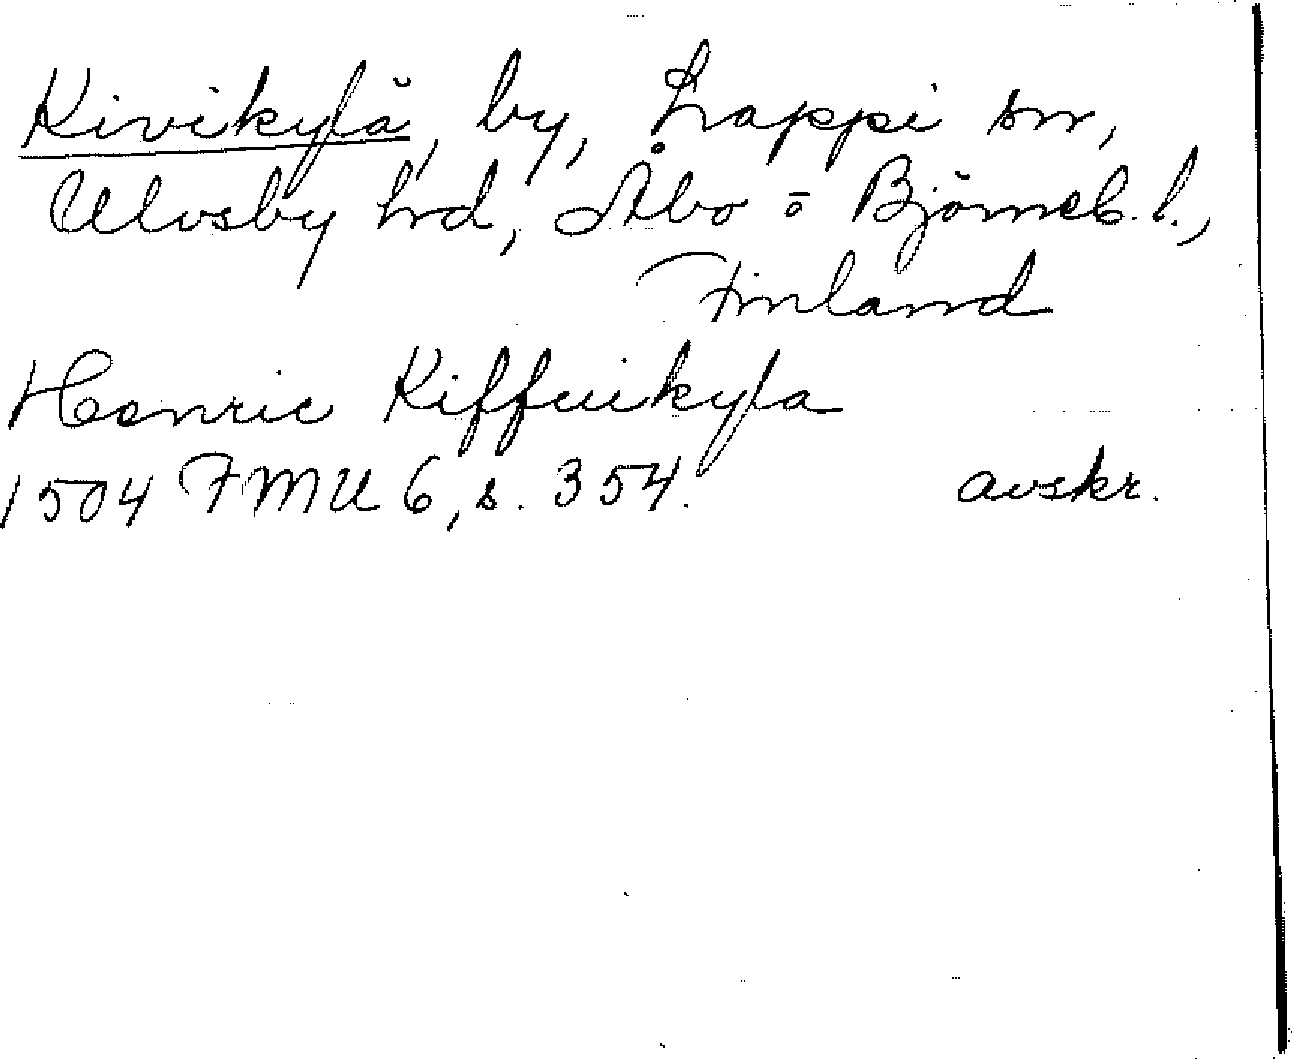 Kivikylä, by, Lappi sn,
Ulvsby hd, Åbo o Björneb. l.,
Finland
Henric Kiffuikyla
1504 FMU 6, s. 354. avskr.